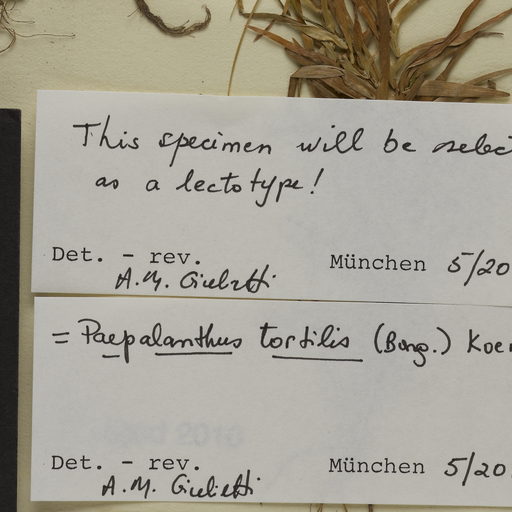 This specimen will be selec
as a lectotype!
Det. - rev.
A.M. Giulietti
München 5/20
= Paepalanthus tortilis (Bong.) Koe
Det. - rev.
A.M. Giulietti
München 5/20